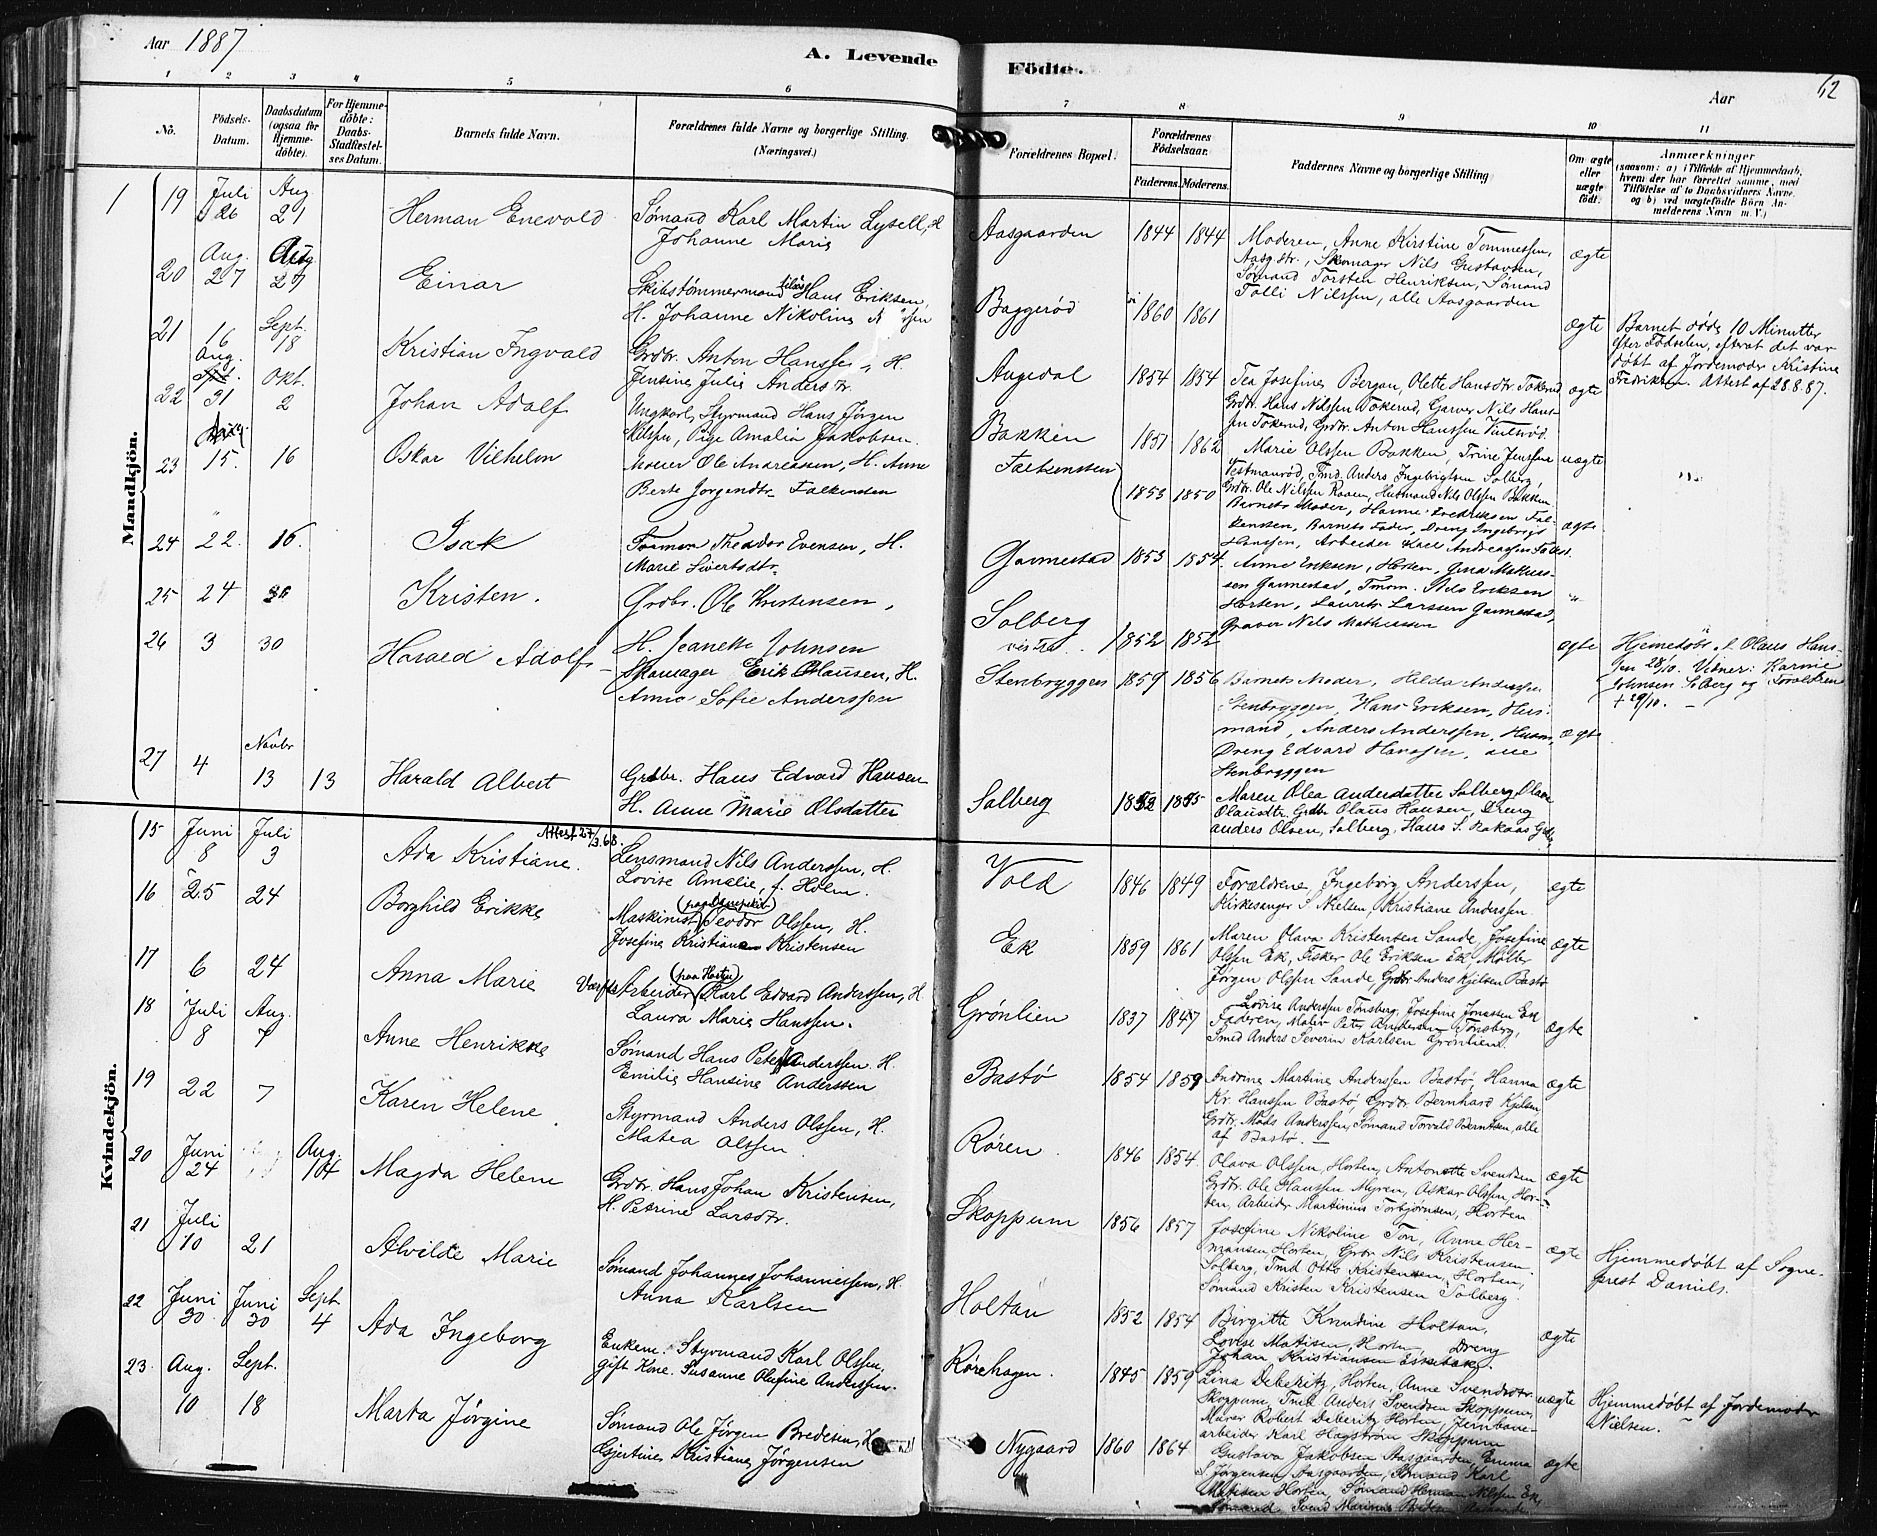 Aar 1887
A. Levende
Födte.
Aar
62
1 2 3 4 5 6 7 8 9 10 11
No.
Födsels-
Datum.
Daabsdatum
(ogsaa for
Hjemme-
döbte).
For Hjemme-
döbte:
Daabs-
Stadfæstel-
ses Datum.
Barnets fulde Navn.
Forældrenes fulde Navne og borgerlige Stilling.
(Næringsvei.)
Forældrenes Bopæl.
Forældrenes
Födselsaar.
Faderens. Moderens.
Faddernes Navne og borgerlige Stilling
Om ægte
eller
uægte
født.
Anmærkninger
(saasom: a) i Tilfælde af Hjemmedaab,
hvem der har forrettet samme, med
Tilføielse af to Daabsvidners Navne
og b) ved uægtefödte Börn An-
melderens Navn m. V.)
Mandkjön.
1
19 Juli 26 Aug. 21
Herman Enevald
Sømand Karl Martin Lysell, H.
Johanne Marie
Aasgaarden 1844 1844
Moderen, Anne Kirstine Tommessen,
Aasg.str., Skomager Nils Gustavsen,
Sømand Torsten Henriksen, Sømand
Tolli Nilssen, alle Aasgaarden
ægte
20 Aug. 27 Aug. 27
Einar
Skibstømmermand Hans Eriksen,
H. Johanne Nikoline
Baggerød 1860 1861
ægte
Barnet døde 10 Minutter
efter Fødselen, efterat det var
døbt af Jordemoder Kristine
Fredriksen. Attest af 28.8.87.
21 16 Aug. Sept. 18
Kristian Ingvald
Grdbr. Anton Hanssen, H.
Jensine Julie Andersdtr.
Augedal 1854 1854
Tea Josefine Bergan, Olette Hansdtr. Tokerud
Grdbr. Hans Nilssen Tokerud, Garver Nils Hans-
sen Tokerud, Grdbr. Anton Hanssen
ægte
22 31 Okt. 2
Johan Adolf
Ungkarl, Styrmand Hans Jørgen
Nilssen, Pige Amalia Jakobsen.
Bakken 1857 1862
Marie Olssen Bakken, Trine Jenssen
Vestmanrød, Tmd. Anders Ingebrigtsen Solberg,
Grdbr. Ole Nilssen Raaen, Husmand Nils Olssen Bakken
uægte
23 Aug. 15. 16
Oskar Vilhelm
Ole Andreassen, H. Anne
Berte Jørgendtr. Falkensten
Falkensten 1853 1850
Barnets Moder, Hanne Fredriksen Fal-
kensten, Barnets Fader, Dreng Ingebregt
Hanssen, Arbeider Karl Andreassen Falkst.
ægte
24 22. 16.
Isak
Tømmerm. Theodor Evensen, H.
Marie Sivertsdtr.
Gannestad 1853 1854
Anne Eriksen, Horten, Gina Mathias-
sen Gannestad, Tmm. Nils Eriksen
Horten, Laurits Larssen Gannestad,
Graver Nils Mathiassen
"
25 24
Kristen.
Grdbr. Ole Kristensen,
H. Jeanette Johnsen
Solberg
vestre. 1852 1852
ægte
Hjemmedøbt af Olaus Hans-
sen 28/10. Vidner: Karine
Johnsen Solberg og Forældren
† 29/10.
26 3 30
Harald Adolf
Skomager Erik Olausen, H.
Anne Sofie Anderssen
Stenbryggen 1859 1856
Barnets Moder, Hilda Anderssen
Stenbryggen, Hans Eriksen, Hus-
mand, Anders Anderssen, Husm.,
Dreng Edvard Hanssen, alle
Stenbryggen
ægte
27 4 Novbr 13 13
Harald Albert
Grdbr. Hans Edvard Hansen
H. Anne Marie Olsdatter
Solberg 1852 1855
Maren Olea Andersdatter Solberg, Olava
Olausdtr. Grdbr. Olaus Hansen, Dreng
Anders Olsen, Solberg, Hans S. Rakaas Grdbr.
Kvindekjön.
15 Juni 8 Juli 3
Attest 27/3.68.
Ada Kristiane.
Lensmand Nils Anderssen, H.
Lovise Amalie, f. Holm.
Vold 1846 1849
Forældrene, Ingeborg Anderssen,
Kirkesanger S. Nielsen, Kristiane Anderssen.
ægte
16 25 24
Borghild Erikke
Maskinist Teodor Olssen, H.
Josefine Kristiane Kristensen
Ek 1859 1861
Maren Olava Kristensen Sande, Josefine
Olssen Ek, Fisker Ole Eriksen Ek, Maler
Jørgen Olssen Sande, Grdbr. Anders Kjelsen Bastø
ægte
17 6 24
Anna Marie
Værfts Arbeider (paa Horten) Karl Edvard Anderssen, H.
Laura Marie Hanssen.
Grønlien 1837 1847
Lovise Anderssen Tønsberg, Josefine Jonassen Ek
Faderen, Maler Peter Anderssen Tønsberg,
Smed Anders Severin Karlsen Grønlien.
ægte
18 Juli 8 Aug. 7
Anne Henrikke
Sømand Hans Peter Anderssen, H.
Emilie Hansine Anderssen
Bastø 1854 1859
Andrine Martine Anderssen Bastø, Hanna
Kr. Hanssen Bastø, Grdbr. Bernhard Kjelsen
Grdbr. Mads Anderssen, Sømand Torvald Berntsen, alle
af Bastø.
ægte
19 22 7
Karen Helene
Styrmand Anders Olssen, H.
Matea Olssen
Røren. 1846 1854
Olava Olssen, Horten, Antonette Svendsen
Grdbr. Ole Hanssen Myren, Oskar Olssen, Hor-
ten, Arbeider Martinius Torbjørnsen, Horten
ægte
20 Juni 24 Aug. 14
Magda Helene
Grdbr. Hans Johan Kristensen,
H. Petrine Larsdtr.
Skoppum 1856 1857
Josefine Nikoline Ton, Anne Her-
mansen Horten, Grdbr. Nils Kristensen
Solberg, Tmd. Otto Kristensen, Horten,
Sømand Kristen Kristensen Solberg.
ægte
Hjemmedøbt af Sogne-
prest Daniels.
21 Juli 10 21
Alvilde Marie
Sømand Johannes Johannessen, H.
Anna Karlsen
Holtan 1852 1854
Birgitte Knudine Holtan,
Lovise Matisen, Horten, Dreng
Johan Kristiansen
ægte
22 Juni 30 Juni 30 Sept 4
Ada Ingeborg
Enkem. Styrmand Karl Olssen,
gift Kone Susanne Olufine Anderssen.
Rørehagen. 1845 1859
Lina Deberitz, Horten, Anne Svendsdtr.
Skoppum, Tmd. Anders Svendsen Skoppum,
Murer Robert Deberitz Horten, Jernbane-
arbeider Karl Hagstrøm Skoppum
uægte
Hjemmedøbt af Jordemoder
Nielsen.
23 Aug. 10 Sept. 18
Marta Jørgine
Sømand Ole Jørgen Bredesen, H.
Gjertine Kristiane Jørgensen
Nygaard 1860 1864
Gustava Jakobsen Aasgaarden, Emma
S. Jørgensen Aasgaarden, Sømand Karl
Matisen Horten, Sømand Herman Nilssen Ek,
Sømand Svend Marinus
ægte